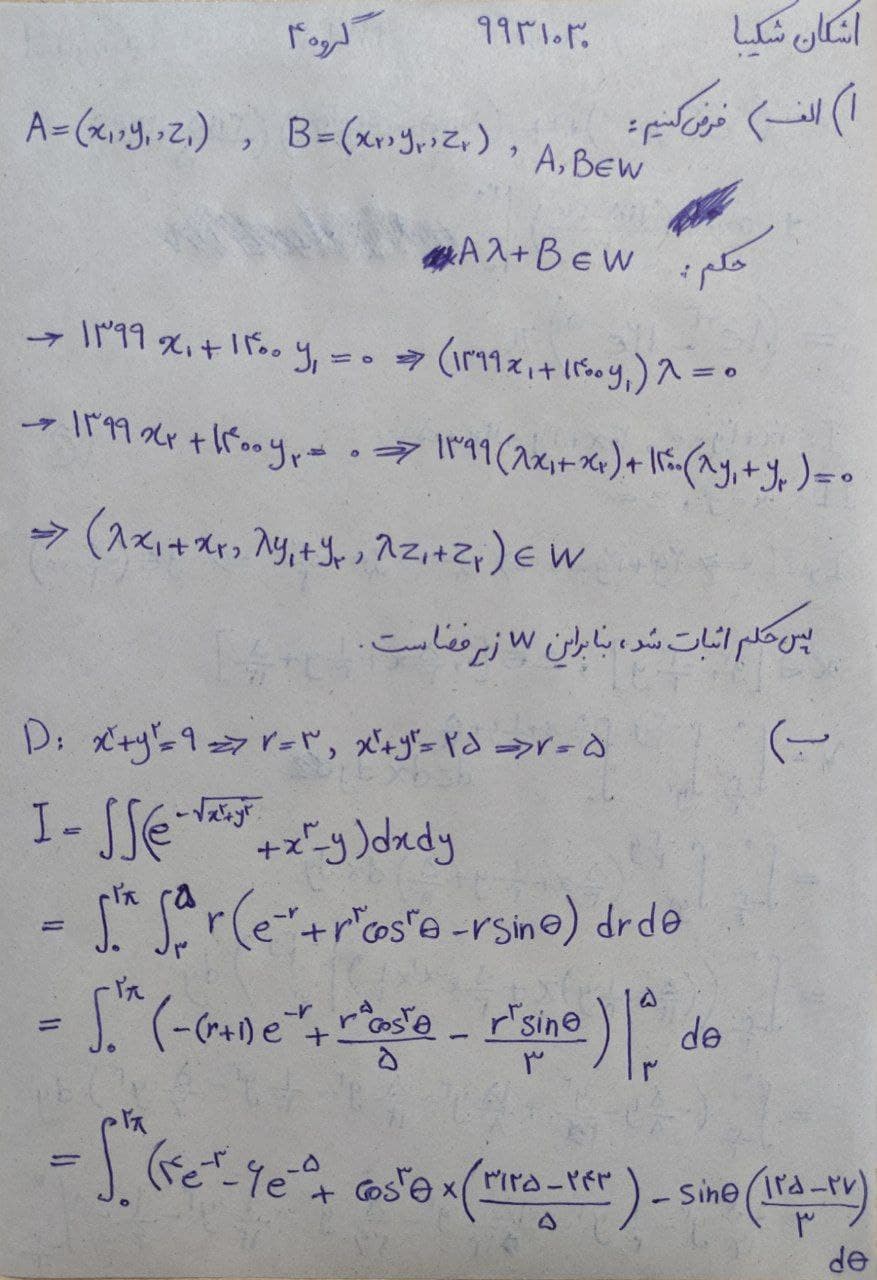 اشکان شکیبا ۹۹۳۱۰۳۰ گروه ۴
۱) الف) فرض کنیم: A=(x₁,y₁,z₁) , B=(x₂,y₂,z₂) , A,B∈W
حکم: Aλ+B∈W
→ ۱۳۹۹x₁+۱۴۰۰y₁=۰ ⇒ (۱۳۹۹x₁+۱۴۰۰y₁)λ=۰
→ ۱۳۹۹x₂+۱۴۰۰y₂=۰ ⇒ ۱۳۹۹(λx₁+x₂)+۱۴۰۰(λy₁+y₂)=۰
⇒ (λx₁+x₂, λy₁+y₂, λz₁+z₂)∈W
پس حکم اثبات شد، بنابراین W زیرفضاست.
ب) D: x²+y²=۹ ⇒ r=۳, x²+y²=۲۵ ⇒ r=۵
I=∬(e^(-√(x²+y²))+x³-y)dxdy
=∫₀^(۲π) ∫₃^۵ r(e^(-r)+r³cos³θ-rsinθ) drdθ
=∫₀^(۲π) (-(r+۱)e^(-r)+(r⁵cos³θ)/۵-(r³sinθ)/۳)|₃^۵ dθ
=∫₀^(۲π) (۴e^(-۳)-۶e^(-۵)+cos³θ×((۳۱۲۵-۲۴۳)/۵)-sinθ((۱۲۵-۲۷)/۳)
dθ